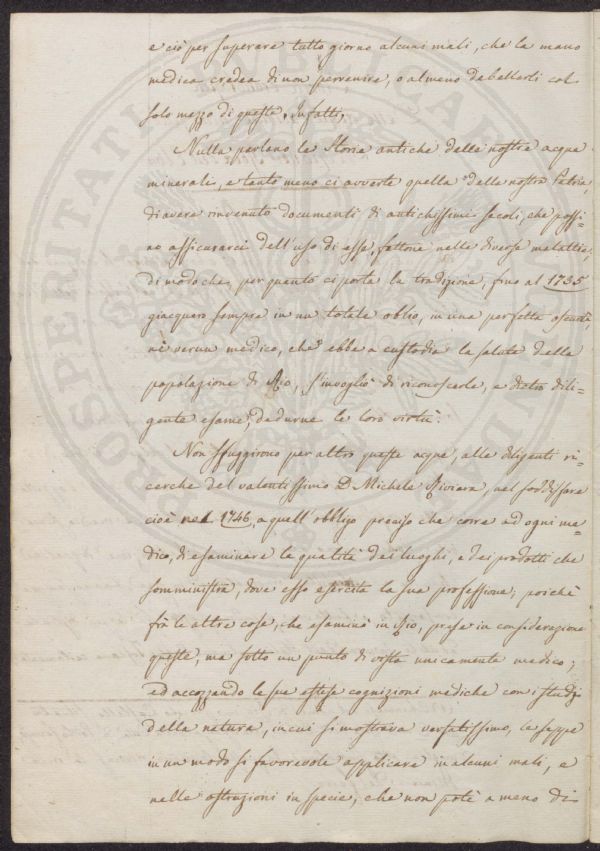 e ciò per superare tutto giorno alcuni mali, che la mano
medica credea di non pervenire, o almeno debellarli col
solo mezzo di queste. Infatti,
Nulla parlano le Storie antiche delle nostre acque
minerali, e tanto meno ci avverte quella delle nostra Patria,
di avere rinvenuto documenti di antichissimi secoli, che possi=
no assicurarci dell'uso di esse, fattone nelle diverse malattie;
di modo che, per quanto ci porta la tradizione, fino al 1735
giacquero sempre in un totale oblio, in una perfetta oscurità
nè verun medico, che ebbe a custodia la salute della
popolazione di Rio, s'invogliò di riconoscerle, e dietro dili=
gente esame, dedurne le loro virtù.
Non sfuggirono per altro queste acque, alle diligenti ri=
cerche del valentissimo D. Michele nel soddisfare
cioè nel 1746, a quell'obbligo preciso che corre ad ogni me=
dico, di esaminare la qualità dei luoghi, e dei prodotti che
somministra, dove esso esercita la sua professione; poichè
frà le altre cose, che esaminò in Rio, prese in considerazione
queste, ma sotto un punto di vista unicamente medico;
ed accozzando le sue estese cognizioni mediche con i studj
della natura, in cui si mostrava versatissimo, le seppe
in un modo sì favorevole applicare in alcuni mali, e
nelle ostruzioni in specie, che non potè a meno di
PROSPERITATI PUBLICAE